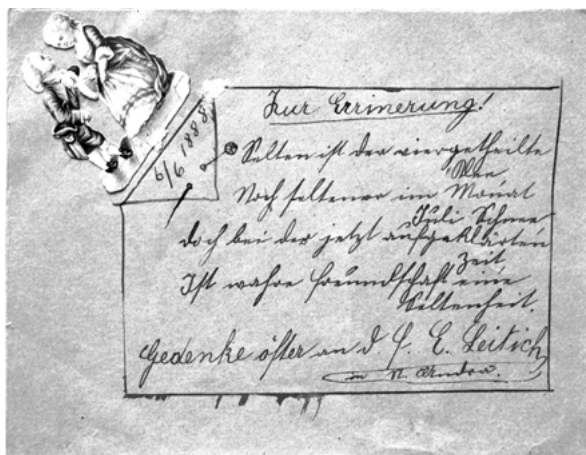 Zur Errinerung!
1888
Selten ist der viergetheilte
Klee
Noch seltener im Monat
Juli Schnee
doch bei der jetzt aufgeklärten
Zeit
Ist wahre Freundschaft eine
Seltenheit.
Gedenke öfter an d. f. E. Leitich
in